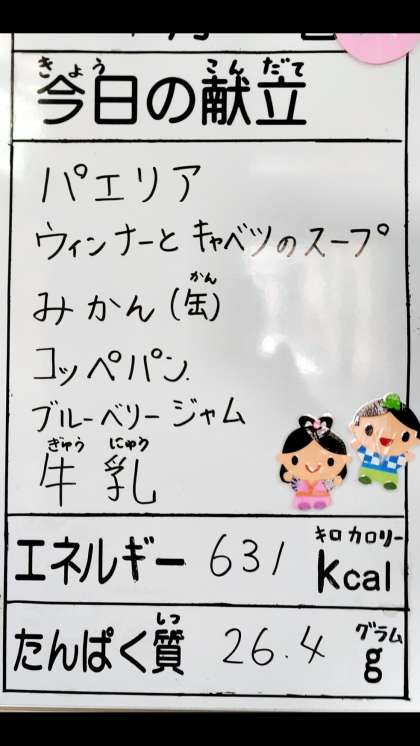 きょう こんだて
今日の献立
パエリア
ウィンナーと キャベツのスープ
かん
みかん(缶)
コッペパン
ブルーベリージャム
ぎゅう にゅう
牛乳
キロカロリー
エネルギー 631 kcal
しつ グラム
たんぱく質 26.4 g